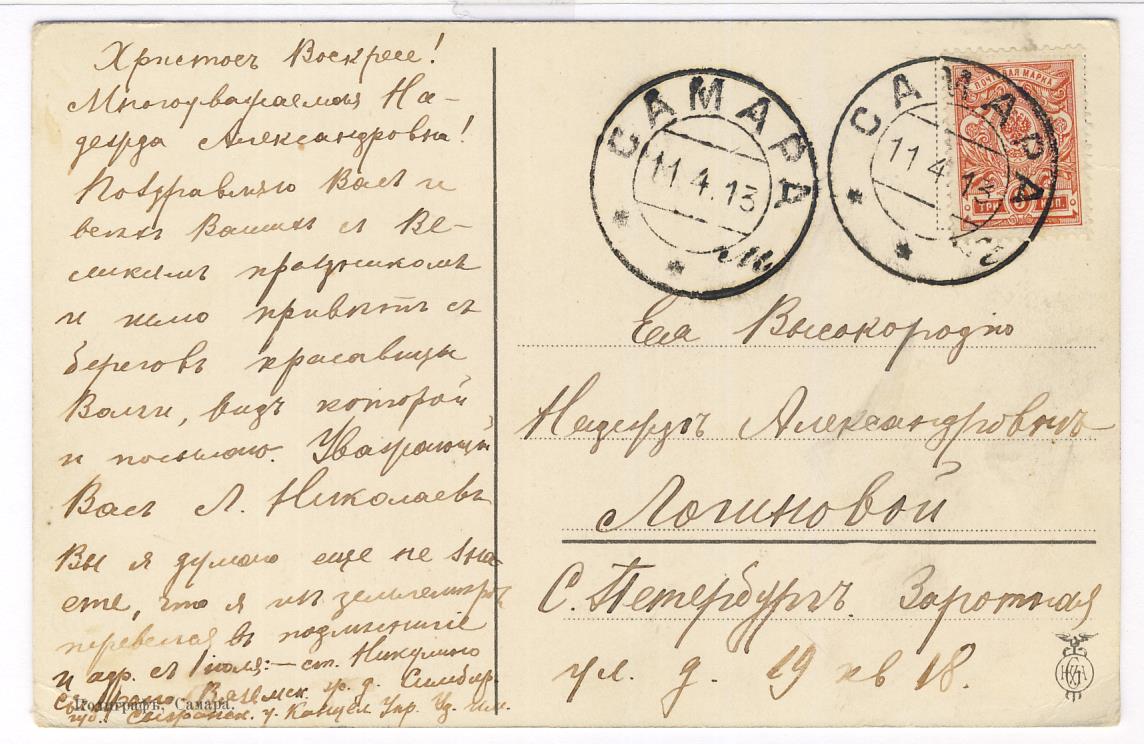 Христосъ Воскресе!
Многоуважаемая На-
дежда Александровна!
Поздравляю Васъ и
всехъ Вашихъ съ Ве-
ликимъ праздникомъ
и шлю приветъ съ
береговъ красавицы
Волги, видъ которой
и посылаю. Уважающій
Васъ Л. Николаевъ
Вы я думаю еще не зна-
ете, что я изъ землемеровъ
перевелся въ
и адр. съ 1 іюля: — ст. Никулино
Вяземск. ж. д. Симбир.
губ. Сызранск. у. Канцел Упр. Уд. Им.
Полиграфъ, Самара.
САМАРА
11.4.13
САМАРА
11.4.13
ПОЧТОВАЯ МАРКА
ТРИ 3 КОП.
Ея Высокородію
Надеждъ Александровнъ
Логиновой
С. Петербургъ. Заротная
ул. д. 19 кв 18.